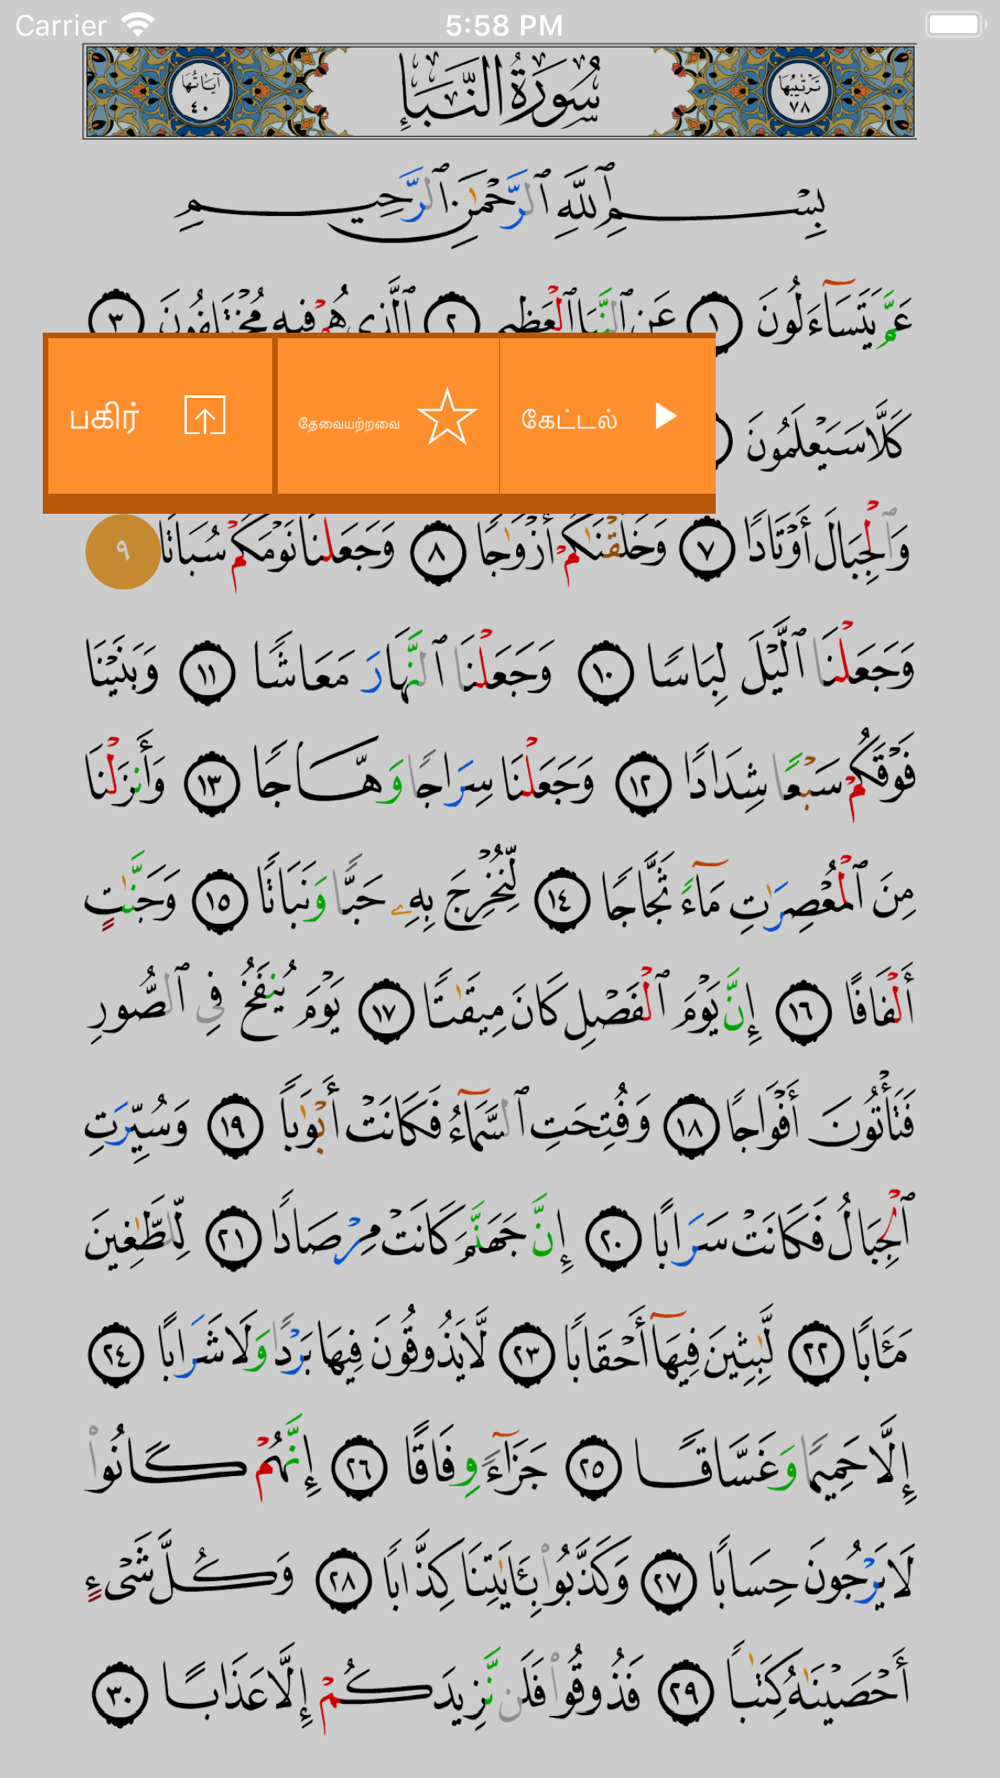 Carrier 5:58 PM
تَرْتِيبُهَا ٧٨ سُورَةُ النَّبَإِ آيَاتُهَا ٤٠
بِسْمِ ٱللَّهِ ٱلرَّحْمَٰنِ ٱلرَّحِيمِ
عَمَّ يَتَسَآءَلُونَ ١ عَنِ ٱلنَّبَإِ ٱلْعَظِيمِ ٢ ٱلَّذِى هُمْ فِيهِ مُخْتَلِفُونَ ٣
பகிர் தேவையற்றவை கேட்டல்
كَلَّا سَيَعْلَمُونَ
وَٱلْجِبَالَ أَوْتَادًا ٧ وَخَلَقْنَٰكُمْ أَزْوَٰجًا ٨ وَجَعَلْنَا نَوْمَكُمْ سُبَاتًا ٩
وَجَعَلْنَا ٱلَّيْلَ لِبَاسًا ١٠ وَجَعَلْنَا ٱلنَّهَارَ مَعَاشًا ١١ وَبَنَيْنَا
فَوْقَكُمْ سَبْعًا شِدَادًا ١٢ وَجَعَلْنَا سِرَاجًا وَهَّاجًا ١٣ وَأَنزَلْنَا
مِنَ ٱلْمُعْصِرَٰتِ مَآءً ثَجَّاجًا ١٤ لِّنُخْرِجَ بِهِۦ حَبًّا وَنَبَاتًا ١٥ وَجَنَّٰتٍ
أَلْفَافًا ١٦ إِنَّ يَوْمَ ٱلْفَصْلِ كَانَ مِيقَٰتًا ١٧ يَوْمَ يُنفَخُ فِى ٱلصُّورِ
فَتَأْتُونَ أَفْوَاجًا ١٨ وَفُتِحَتِ ٱلسَّمَآءُ فَكَانَتْ أَبْوَٰبًا ١٩ وَسُيِّرَتِ
ٱلْجِبَالُ فَكَانَتْ سَرَابًا ٢٠ إِنَّ جَهَنَّمَ كَانَتْ مِرْصَادًا ٢١ لِّلطَّٰغِينَ
مَـَٔابًا ٢٢ لَّٰبِثِينَ فِيهَآ أَحْقَابًا ٢٣ لَّا يَذُوقُونَ فِيهَا بَرْدًا وَلَا شَرَابًا ٢٤
إِلَّا حَمِيمًا وَغَسَّاقًا ٢٥ جَزَآءً وِفَاقًا ٢٦ إِنَّهُمْ كَانُوا۟
لَا يَرْجُونَ حِسَابًا ٢٧ وَكَذَّبُوا۟ بِـَٔايَٰتِنَا كِذَّابًا ٢٨ وَكُلَّ شَىْءٍ
أَحْصَيْنَٰهُ كِتَٰبًا ٢٩ فَذُوقُوا۟ فَلَن نَّزِيدَكُمْ إِلَّا عَذَابًا ٣٠